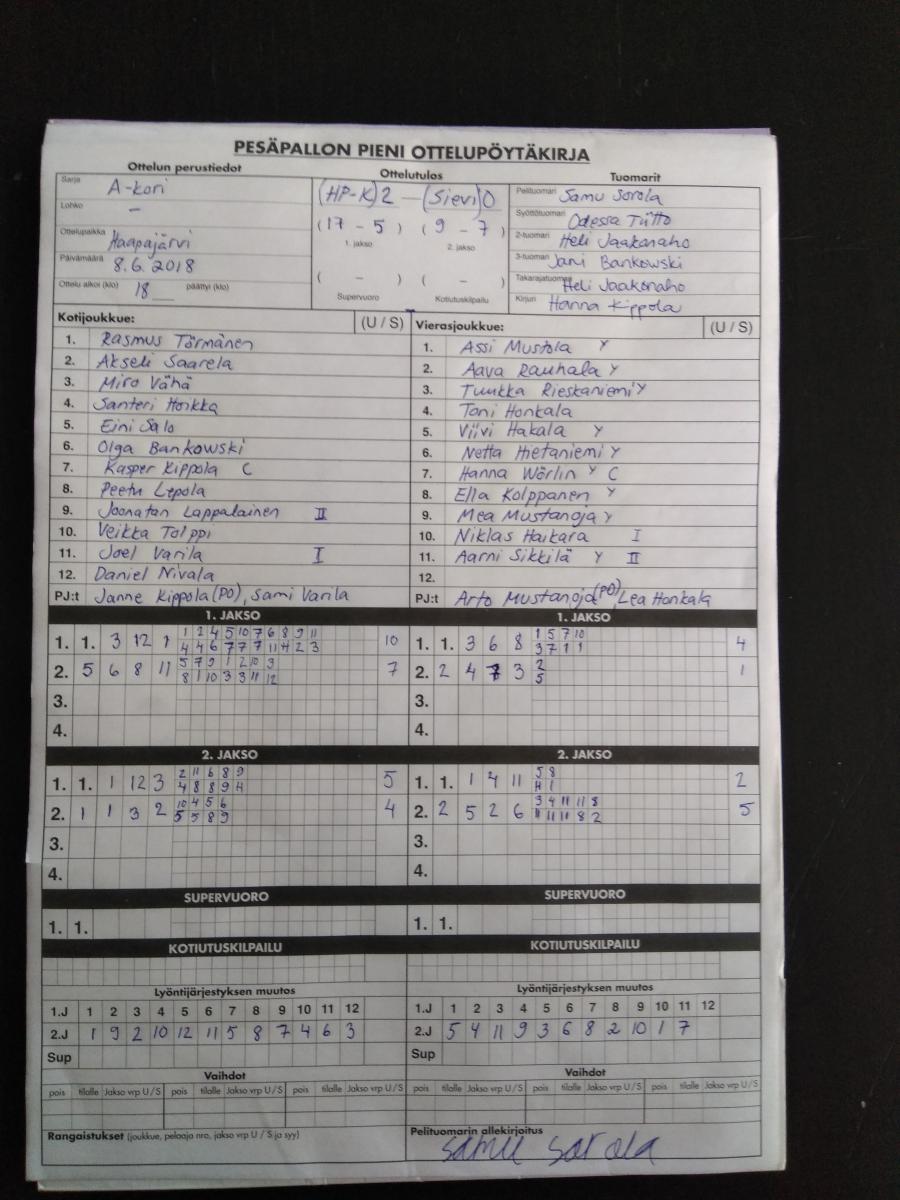 PESÄPALLON PIENI OTTELUPÖYTÄKIRJA
Ottelun perustiedot Ottelutulos Tuomarit
Sarja A-kori
Lohko -
Ottelupaikka Haapajärvi
Päivämäärä 8.6.2018
Ottelu alkoi (klo) 18 päättyi (klo)
(HP-K) 2 - (Sievi) 0
(17 - 5) (9 - 7)
1. jakso 2. jakso
( - ) ( - )
Supervuoro Kotiutuskilpailu
Pelituomari Samu Sorola
Syöttötuomari Odessa Tütto
2-tuomari Heli Jaakonaho
3-tuomari Jani Bankowski
Takarajatuomari Heli Jaakonaho
Kirjuri Hanna Kippola
Kotijoukkue: (U / S)
1. Rasmus Törmänen
2. Akseli Saarela
3. Miro Vähä
4. Santeri Hoikka
5. Eini Salo
6. Olga Bankowski
7. Kasper Kippola C
8. Peetu Lepola
9. Joonatan Lappalainen II
10. Veikka Tolppi
11. Joel Varila I
12. Daniel Nivala
PJ:t Janne Kippola (PO), Sami Varila
Vierasjoukkue: (U / S)
1. Assi Mustola Y
2. Aava Rauhala Y
3. Tuukka Rieskaniemi Y
4. Toni Honkala
5. Viivi Hakala Y
6. Netta Hietaniemi Y
7. Hanna Wörlin Y C
8. Ella Kolppanen Y
9. Mea Mustanoja Y
10. Niklas Haikara I
11. Aarni Sikkilä Y II
12.
PJ:t Arto Mustanoja (PO), Lea Honkala
1. JAKSO
1. 1. 3 12 1 1 2 4 5 10 7 6 8 9 11 10
4 4 6 7 7 7 11 4 2 3
2. 5 6 8 11 5 7 9 1 2 10 3 7
8 1 10 3 3 11 12
3.
4.
1. JAKSO
1. 1. 3 6 8 1 5 7 10 4
3 7 1 1
2. 2 4 7 3 2 1
5
3.
4.
2. JAKSO
1. 1. 1 12 3 2 11 6 8 9 5
4 8 8 9 4
2. 1 1 3 2 10 4 5 6 4
5 5 8 9
3.
4.
2. JAKSO
1. 1. 1 4 11 5 8 2
4 1
2. 2 5 2 6 3 4 11 11 8 5
11 11 11 8 2
3.
4.
SUPERVUORO
1. 1.
SUPERVUORO
1. 1.
KOTIUTUSKILPAILU
KOTIUTUSKILPAILU
Lyöntijärjestyksen muutos
1.J 1 2 3 4 5 6 7 8 9 10 11 12
2.J 1 9 2 10 12 11 5 8 7 4 6 3
Sup
Lyöntijärjestyksen muutos
1.J 1 2 3 4 5 6 7 8 9 10 11 12
2.J 5 4 11 9 3 6 8 2 10 1 7
Sup
Vaihdot
pois tilalle Jakso vrp U/S pois tilalle Jakso vrp U/S pois tilalle Jakso vrp U/S
Vaihdot
pois tilalle Jakso vrp U/S pois tilalle Jakso vrp U/S pois tilalle Jakso vrp U/S
Rangaistukset (joukkue, pelaaja nro, jakso vrp U / S ja syy)
Pelituomarin allekirjoitus
Samu Sorola